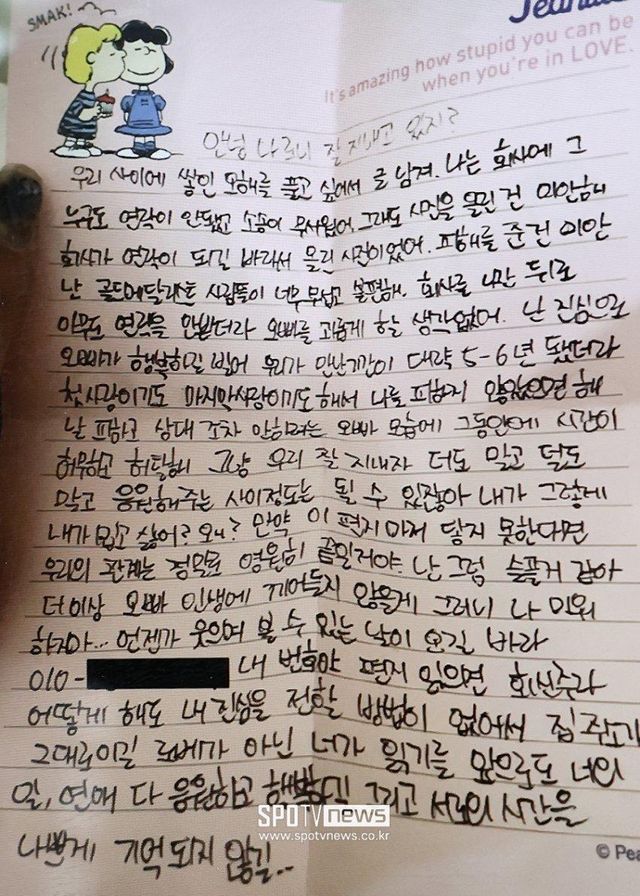 SMAK!
It's amazing how stupid you can be
when you're in LOVE.
안녕 잘 지내고 있지?
우리 사이에 쌓인 오해를 풀고 싶어서 글 남겨. 나는 회사에 그
누구도 연락이 안됐고 소송이 무서웠어. 그래도 사진을 올린 건 미안해
회사가 연락이 되길 바라서 올린 사진이었어. 피해를 준건 미안
난 골드메달리스트 사람들이 너무 무섭고 불편해. 회사를 나간 뒤로
아무도 연락을 안받더라 오빠를 괴롭게 할 생각없어. 난 진심으로
오빠가 행복하길 빌어 우리가 만난기간이 대략 5-6년 됐더라
첫사랑이기도 마지막사랑이기도 해서 나를 피하지 않았으면 해
날 피하고 상대 조차 안하려는 오빠 모습에 그동안에 시간이
허무하고 허탈해 그냥 우리 잘 지내자 더도 말고 덜도
말고 응원해주는 사이정도는 될 수 있잖아 내가 그렇게
내가 밉고 싫어? 왜? 만약 이 편지마저 닿지 못한다면
우리의 관계는 정말로 영원히 끝일거야. 난 그럼 슬플거 같아
더이상 오빠 인생에 끼어들지 않을게 그러니 나 미워
하지마... 언젠가 웃으며 볼 수 있는 날이 오길 바라
010- 내 번호야 편지 읽으면 회신주라
어떻게 해도 내 진심을 전할 방법이 없어서 집 주소가
그대로이길 로베가 아닌 너가 읽기를 앞으로도 너의
일, 연애 다 응원하고 행복하길 그리고 서로의 시간을
나쁘게 기억되지 않길..
SPOTV news
www.spotvnews.co.kr
© Pea